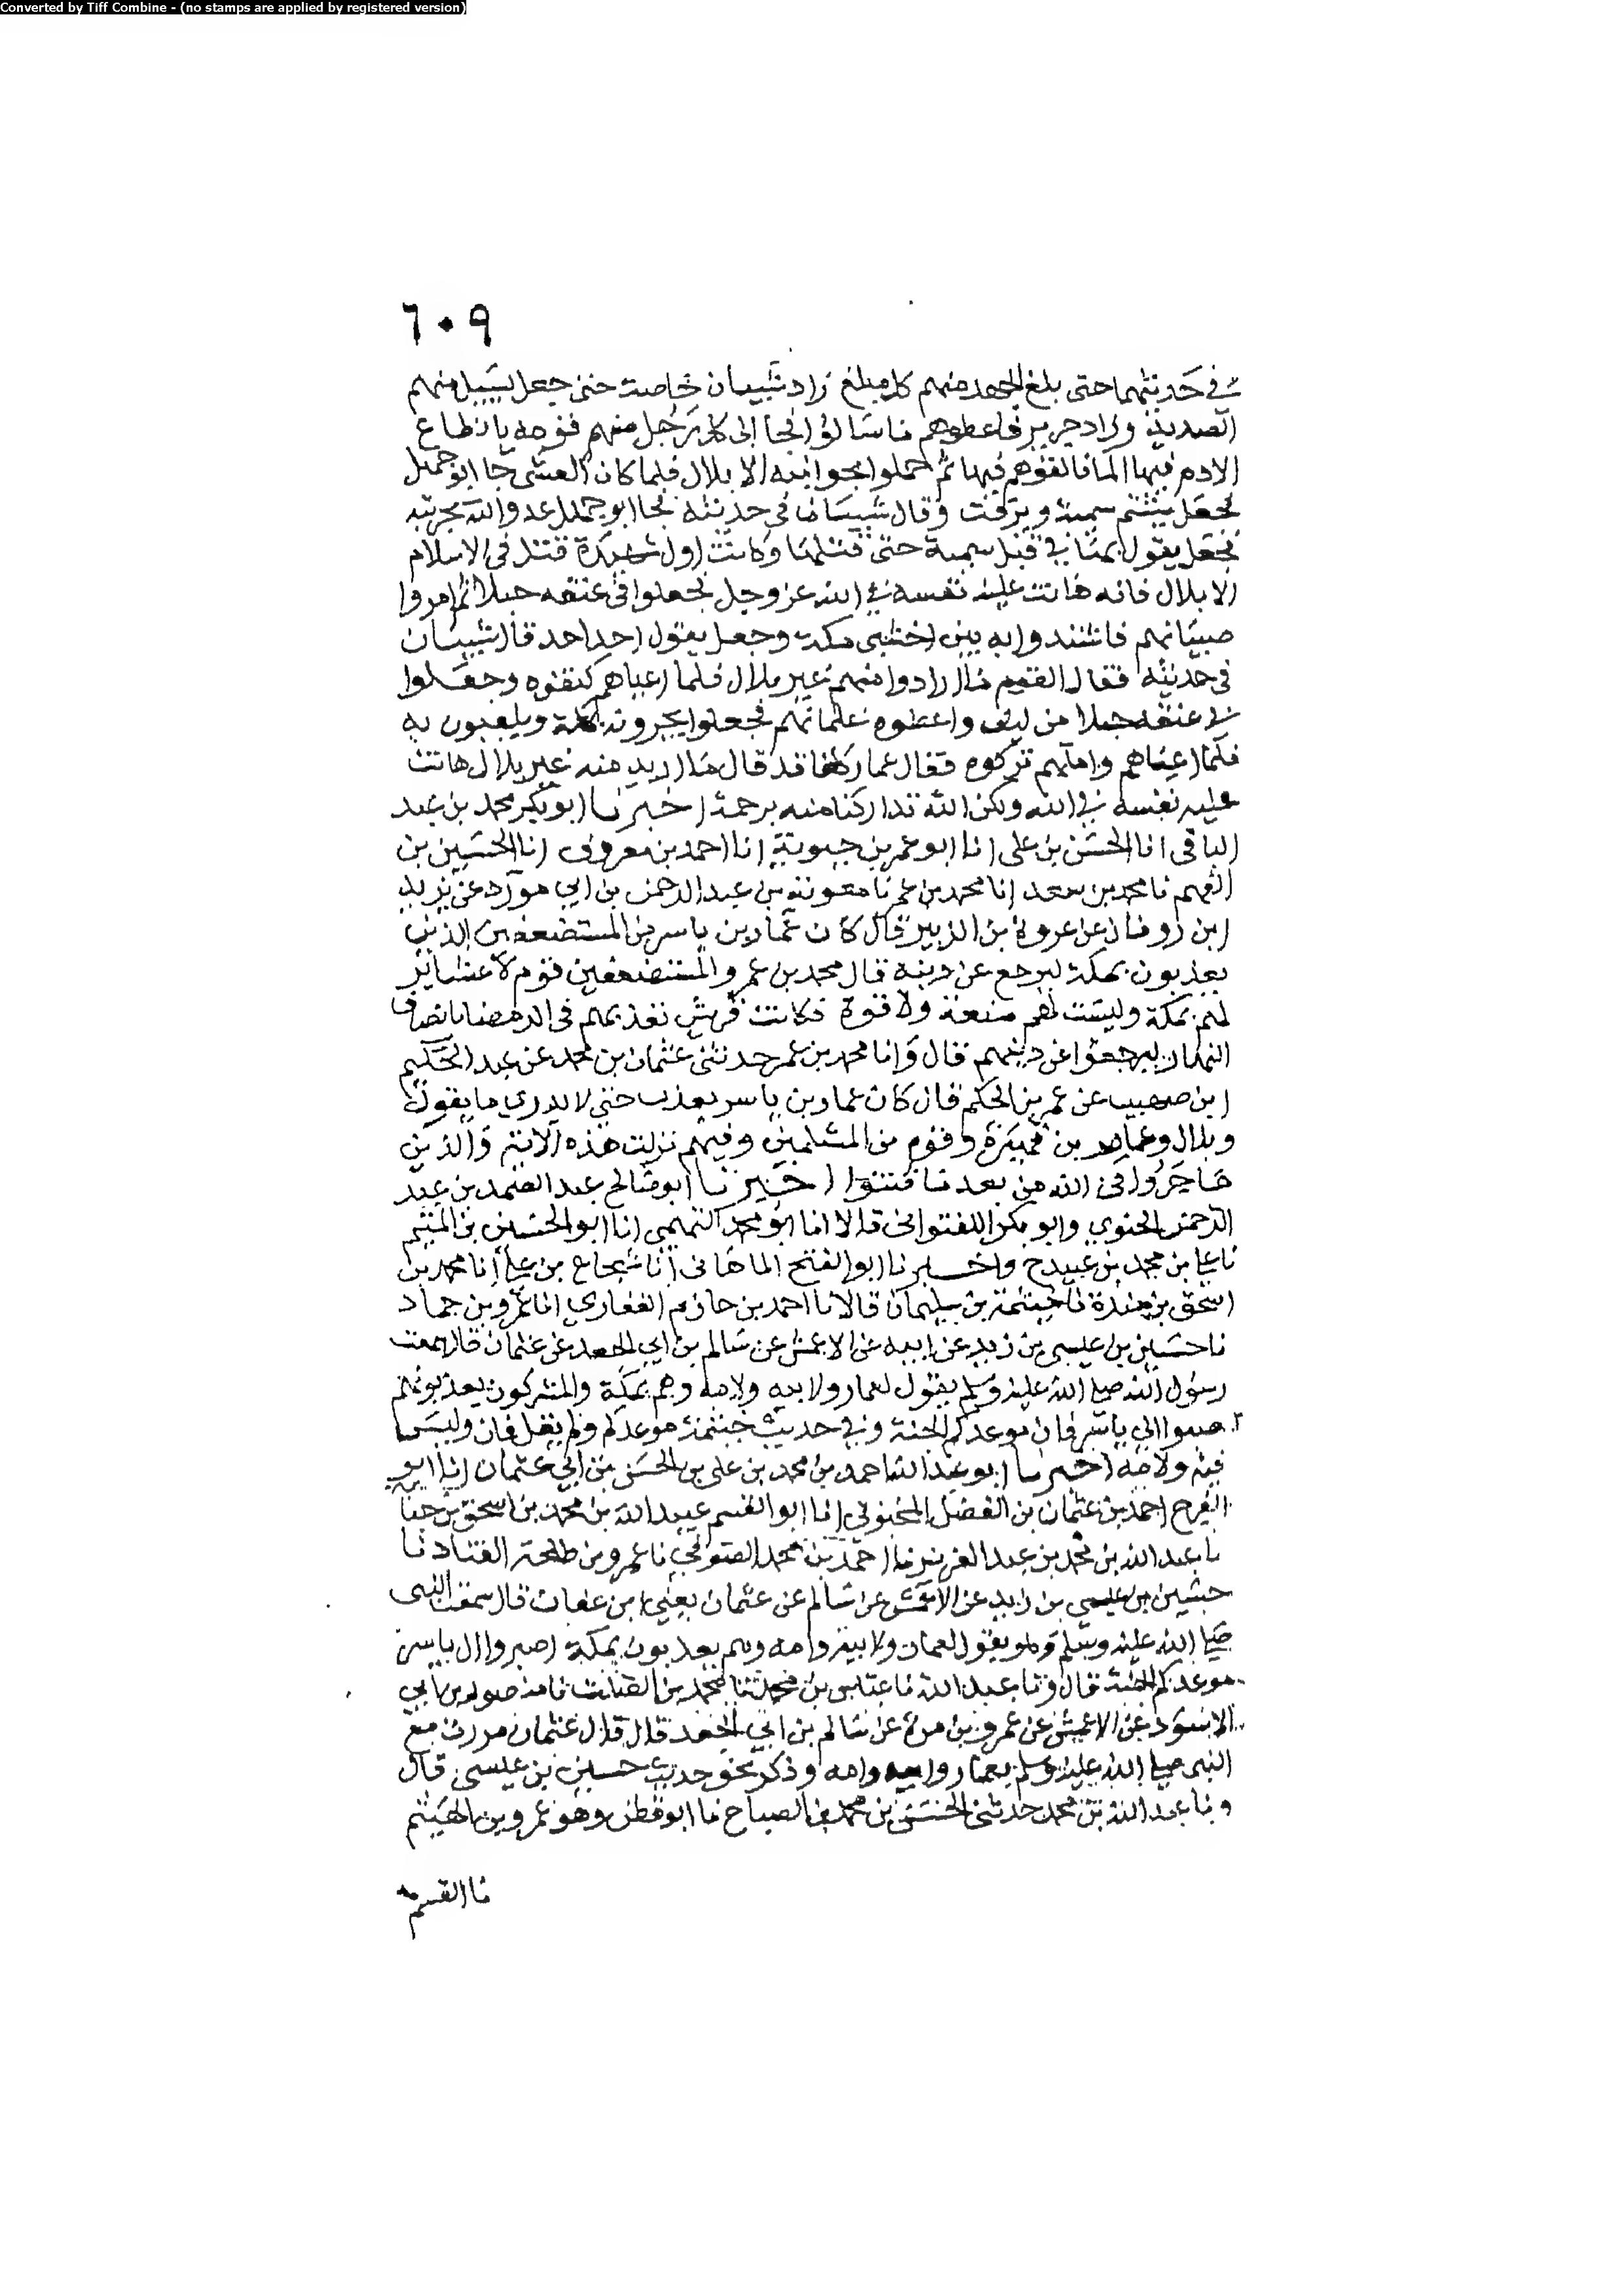 Converted by Tiff Combine - (no stamps are applied by registered version)
٦٠٩
في حديثهما حتى بلغ الجهد منهم كل مبلغ زاد شيبان خاصة حتى جعل يسيل منهم
الصديد وزاد جرير فاعطوهم ما سالوا فجا الى كل رجل منهم قومه بانطاع
الادم فيها الما فالقوهم فيها ثم حملوا بجوانبه الا بلال فلما كان العشى جا ابو جهل
فجعل يشتم سمية ويرفث وقال شيبان في حديثه فجا ابو جهل عدو الله
فجعل يقول في قبل سمية حتى قتلها وكانت اول شهيدة قتل في الاسلام
الا بلال فانه هانت عليه نفسه في الله عز وجل فجعلوا في عنقه حبلا ثم امروا
صبيانهم فاشتدوا به بين اخشبى مكة وجعل يقول احد احد قال شيبان
في حديثه فقال القوم ما ارادوا منهم غير بلال فلما اعياهم كتفوه وجعلوا
في عنقه حبلا من ليف واعطوه غلمانهم فجعلوا يجرونه بمكة ويلعبون به
فلما اعياهم واملهم تركوه فقال عمار كلنا قد قال ما اريد منه غير بلال هانت
عليه نفسه في الله ولكن الله تداركنا منه برحمة اخبرنا ابو بكر محمد بن عبد
الباقى انا الحسن بن على انا ابو عمر بن حيوية انا احمد بن معروف انا الحسين بن
الفهم نا محمد بن سعد انا محمد بن عمر نا معوية بن عبد الرحمن بن ابي مزرد عن يزيد
ابن رومان عن عروة بن الزبير قال كان عمار بن ياسر من المستضعفين الذين
يعذبون بمكة ليرجع عن دينه قال محمد بن عمر والمستضعفين قوم لا عشاير
لهم بمكة وليست لهم منعة ولا قوة فكانت قريش تعذبهم في الرمضا بانصاف
النهار ليرجعوا عن دينهم قال وانا محمد بن عمر حدثنى عثمان بن محمد عن عبد الحكيم
ابن صهيب عن عمر بن الحكم قال كان عمار بن ياسر يعذب حتى لا يدري ما يقول
وبلال وعامر بن فهيرة وقوم من المسلمين وفيهم نزلت هذه الاية والذين
هاجروا في الله من بعد ما فتنوا اخبرنا ابو صالح عبد الصمد بن عبد
الرحمن الحنوي وابو بكر اللفتوانى قالا انا ابو محمد التميمي انا ابو الحسين بن المتيم
نا علي بن محمد بن عبيد ح واخبرنا ابو الفتح الماهانى انا شجاع بن علي انا محمد بن
اسحق بن مندة نا خيثمة بن سليمان قالا نا احمد بن حازم الغفاري انا عمرو بن حماد
نا حسين بن عيسى بن زيد عن ابيه عن الاعمش عن سالم بن ابي الجعد عن عثمان قال سمعت
رسول الله صلى الله عليه وسلم يقول لعمار ولابيه ولامه وهم بمكة والمشركون يعذبونهم
صبرا ال ياسر فان موعدكم الجنة وفي حديث خيثمة موعدكم ولم يقل فان وليس
فيه ولامه اخبرنا ابو عبد الله احمد بن محمد بن على بن الحسن بن ابي عثمان انا ابو
الفرج احمد بن عثمان بن الفضل المخبزي انا ابو القسم عبيد الله بن محمد بن اسحق بن حبابة
نا عبد الله بن محمد بن عبد العزيز نا احمد بن محمد نا عمرو بن طلحة القناد نا
حسين بن عيسى بن زيد عن الاعمش عن سالم عن عثمان يعنى ابن عفان قال سمعت النبى
صلى الله عليه وسلم وهو يقول لعمار ولابيه وامه وهم يعذبون بمكة اصبروا ال ياسر
موعدكم الجنة قال ونا عبد الله نا عباس بن محمد نا محمد بن الصلت نا منصور بن ابي
الاسود عن الاعمش عن عمرو بن مرة عن سالم بن ابي الجعد قال قال عثمان مررت مع
النبى صلى الله عليه وسلم بعمار وابيه وامه وذكر نحو حديث حسين بن عيسى قال
ونا عبد الله بن محمد حدثنى الحسن بن محمد بن الصباح نا ابو قطن وهو عمرو بن الهيثم
نا القسم